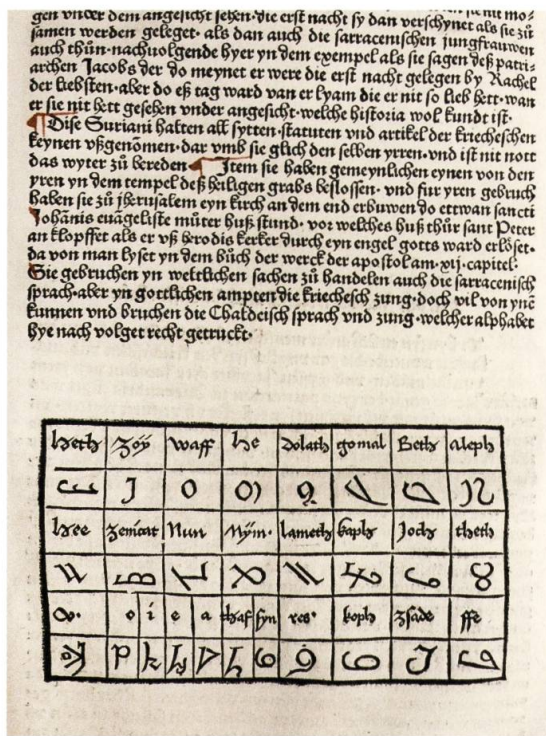 gen vnder dem angesicht sehen·die erst nacht sy dan verschynet als sie zů
samen werden geleget· als dan auch die sarracenischen jungfrauwen
auch thůn·nachuolgende hyer yn dem exempel als sie sagen deß patri-
archen Jacobs der do meynet er were die erst nacht gelegen by Rachel
der liebsten·aber do eß tag ward van er lyam die er nit so lieb hett·wan
er sie nit hett gesehen vnder angesicht·welche historia wol kundt ist·
Dise Suriani halten all sytten·statuten vnd artikel der kriecheschen
keynen vßgenomen·dar vmb sie glich den selben yrren·vnd ist nit nott
das wyter zů bereden Item sie haben gemeynlichen eynen von den
yren yn dem tempel deß heiligen grabs beslossen· vnd fur yren gebruch
haben sie zů jherusalem eyn kirch an dem end erbuwen do ettwan sancti
Johānis euāgeliste můter huß stund· vor welches huß thür sant Peter
an klopffet als er vß herodis kerker durch eyn engel gotts ward erlöset·
da von man lyset yn dem bůch der werck der apostol am·xij·capitel·
Sie gebruchen yn weltlichen sachen zů handelen auch die sarracenisch
sprach·aber yn gottlichen ampten die kriechesch zung·doch vil von ynē
kunnen vnd bruchen die Chaldeisch sprach vnd zung·welcher alphabet
hye nach volget recht getruckt·
heth zoÿ waff he dolath gomal Beth Aleph
hee zemcat Nun Mÿm· lameth kaph Joch theth
o i e a thaf syn res· koph zsade ffe